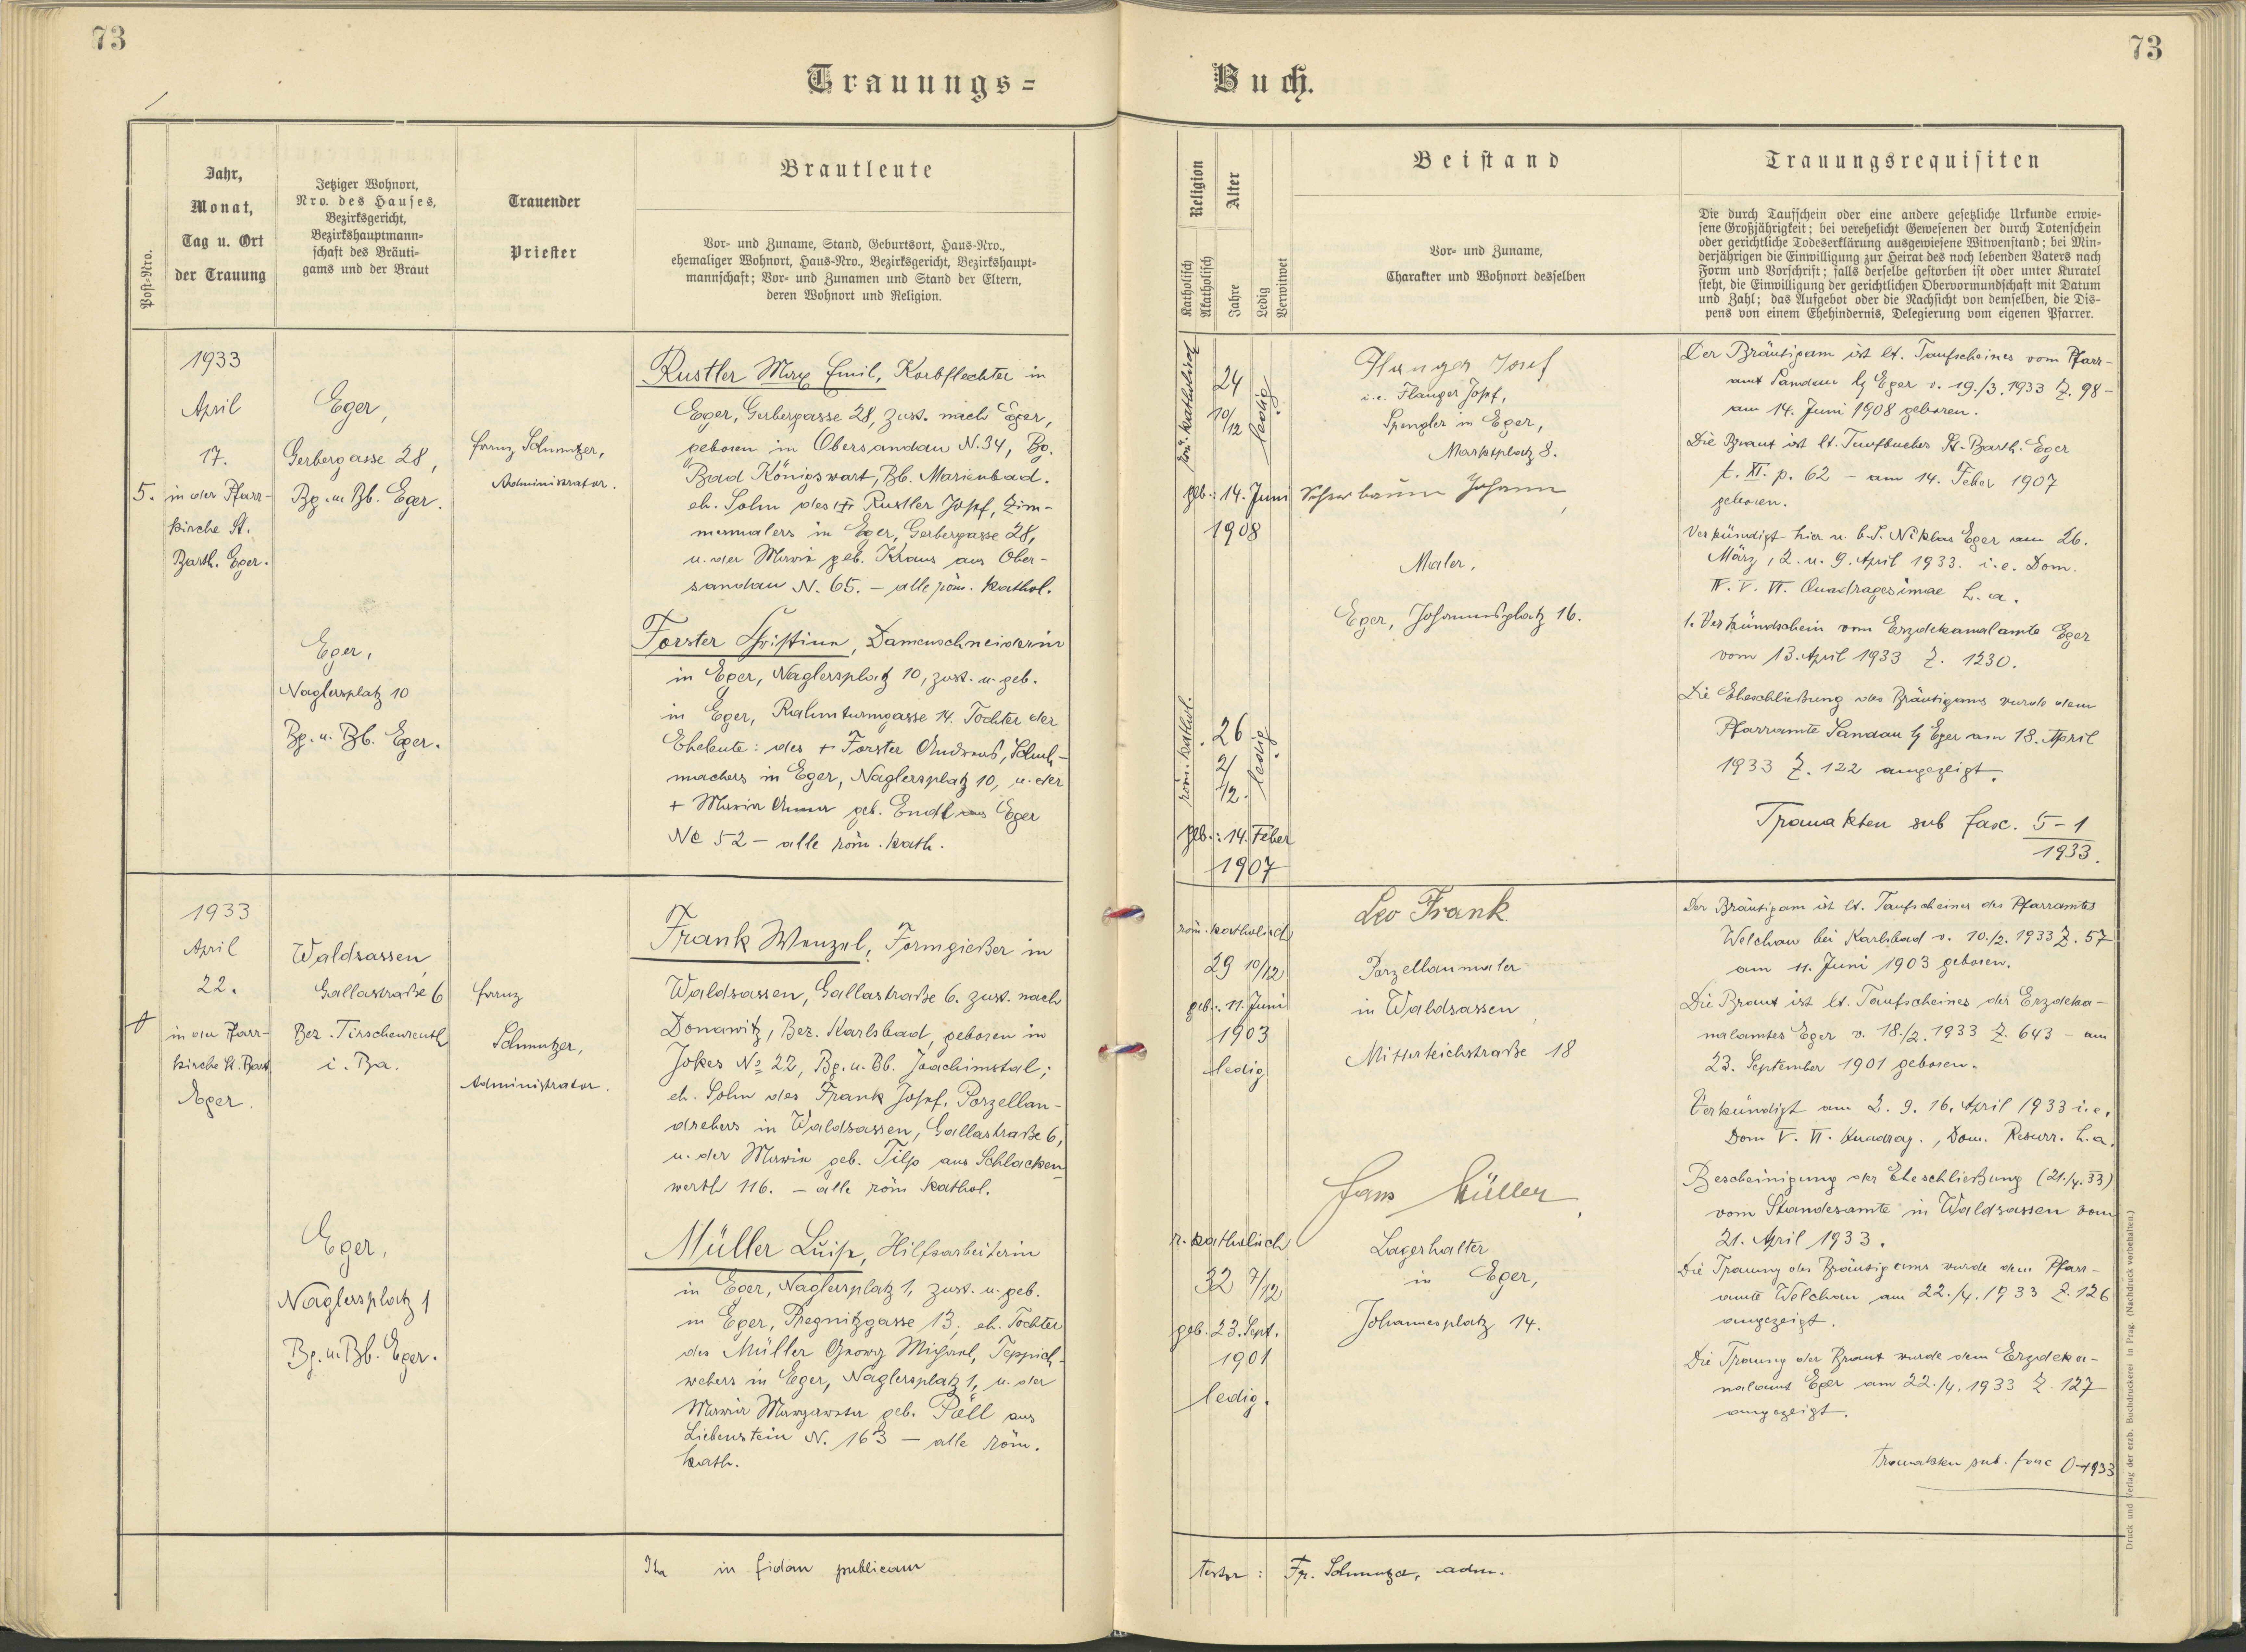 73
Trauungs=
Post-Nro.
Jahr,
Monat,
Tag u. Ort
der Trauung
Jetziger Wohnort,
Nro. des Hauses,
Bezirksgericht,
Bezirkshauptmann=
schaft des Bräuti=
gams und der Braut
Trauender
Priester
Brautleute
Vor= und Zuname, Stand, Geburtsort, Haus=Nro.,
ehemaliger Wohnort, Haus=Nro., Bezirksgericht, Bezirkshaupt=
mannschaft; Vor= und Zunamen und Stand der Eltern,
deren Wohnort und Religion.
5.
1933
April
17.
in der Pfarr-
kirche St.
Barth. Eger.
Eger,
Gerbergasse 28,
Bg. u. Bb. Eger.
Franz Schmutzer,
Administrator.
Rustler Max Emil, Korbflechter in
Eger, Gerbergasse 28, zust. nach Eger,
geboren in Obersandau N. 34, Bg.
Bad Königswart, Bb. Marienbad.
eh. Sohn des Rustler Josef, Zim-
mermalers in Eger, Gerbergasse 28,
u. der Maria geb. Kraus aus Ober-
sandau N. 65. – alle röm. kathol.
Eger,
Naglersplatz 10
Bg. u. Bb. Eger.
Forster Christina, Damenschneiderin
in Eger, Naglersplatz 10, zust. u. geb.
in Eger, Rahmturmgasse 14. Tochter der
Eheleute: des + Forster Andreas, Schuh-
machers in Eger, Naglersplatz 10, u. der
+ Maria Anna geb. Endt aus Eger
Nc 52 – alle röm. kath.
1933
April
22.
in der Pfarr-
kirche St. Bart.
Eger.
Waldsassen
Gallastraße 6
Bez. Tirschenreuth
i. Ba.
Franz
Schmutzer,
Administrator.
Frank Wenzel, Formgießer in
Waldsassen, Gallastraße 6. zust. nach
Donawitz, Bez. Karlsbad, geboren in
Jokes No 22, Bg. u. Bb. Joachimstal;
eh. Sohn des Frank Josef, Porzellan-
drehers in Waldsassen, Gallastraße 6,
u. der Maria geb. Tilp aus Schlacken-
werth 116. – alle röm kathol.
Eger,
Naglersplatz 1
Bg. u. Bb. Eger.
Müller Luise, Hilfsarbeiterin
in Eger, Naglersplatz 1, zust. u. geb.
in Eger, Pregnitzgasse 13, eh. Tochter
des Müller Georg Michael, Teppich-
webers in Eger, Naglersplatz 1, u. der
Maria Margareta geb. Pöll aus
Liebenstein N. 163 – alle röm.
kath.
Ita in fidem publicam
73
Buch.
Religion
Katholisch
Akatholisch
Alter
Jahre
Ledig
Verwitwet
Beistand
Vor= und Zuname,
Charakter und Wohnort desselben
Trauungsrequisiten
Die durch Taufschein oder eine andere gesetzliche Urkunde erwie=
sene Großjährigkeit; bei verehelicht Gewesenen der durch Totenschein
oder gerichtliche Todeserklärung ausgewiesene Witwenstand; bei Min=
derjährigen die Einwilligung zur Heirat des noch lebenden Vaters nach
Form und Vorschrift; falls derselbe gestorben ist oder unter Kuratel
steht, die Einwilligung der gerichtlichen Obervormundschaft mit Datum
und Zahl; das Aufgebot oder die Nachsicht von demselben, die Dis=
pens von einem Ehehindernis, Delegierung vom eigenen Pfarrer.
röm. katholisch
24
10/12
ledig
geb.: 14. Juni
1908
Flanger Josef
i.e. Flanger Josef,
Spengler in Eger,
Marktplatz 8.
Johann,
Maler,
Eger, Johannesplatz 16.
röm. kathol.
26
2/12.
ledig
geb.: 14. Feber
1907
Der Bräutigam ist lt. Taufscheines vom Pfarr-
amt Sandau b/ Eger v. 19./3. 1933 Z. 98 –
am 14. Juni 1908 geboren.
Die Braut ist lt. Taufbuches St. Barth. Eger
t. XI. p. 62 – am 14. Feber 1907
geboren.
Verkündigt hier u. b. S. Niklas Eger am 26.
März, 2. u. 9. April 1933. i.e. Dom.
IV. V. VI. Quadragesimae h. a.
1. Verkündschein vom Erzdekanalamte Eger
vom 13. April 1933 Z. 1230.
Die Eheschließung des Bräutigams wurde dem
Pfarramte Sandau b/ Eger am 18. April
1933 Z. 122 angezeigt.
Trauakten sub fasc. 5-1
1933.
röm. katholisch
29 10/12
geb.: 11. Juni
1903
ledig
Leo Frank
Porzellanmaler
in Waldsassen
Mitterteichstraße 18
r. katholisch
32 7/12
geb. 23. Sept.
1901
ledig.
Hans Müller,
Lagerhalter
in Eger,
Johannesplatz 14.
Der Bräutigam ist lt. Taufscheines des Pfarramtes
Welchau bei Karlsbad v. 10./2. 1933 Z. 57
am 11. Juni 1903 geboren.
Die Braut ist lt. Taufscheines des Erzdeka-
nalamtes Eger v. 18./2. 1933 Z. 643 – am
23. September 1901 geboren.
Verkündigt am 2. 9. 16. April 1933 i.e.
Dom V. VI. Quadrag., Dom. Resurr. h. a.
Bescheinigung der Eheschließung (21./4. 33)
vom Standesamte in Waldsassen vom
21. April 1933.
Die Trauung des Bräutigams wurde dem Pfarr-
amte Welchau am 22./4. 1933 Z. 126
angezeigt.
Die Trauung der Braut wurde dem Erzdeka-
nalamt Eger am 22./4. 1933 Z. 127
angezeigt.
Trauakten sub. fasc 0-1933
testor: Fr. Schmutzer, adm.
Druck und Verlag der erzb. Buchdruckerei in Prag. (Nachdruck vorbehalten.)